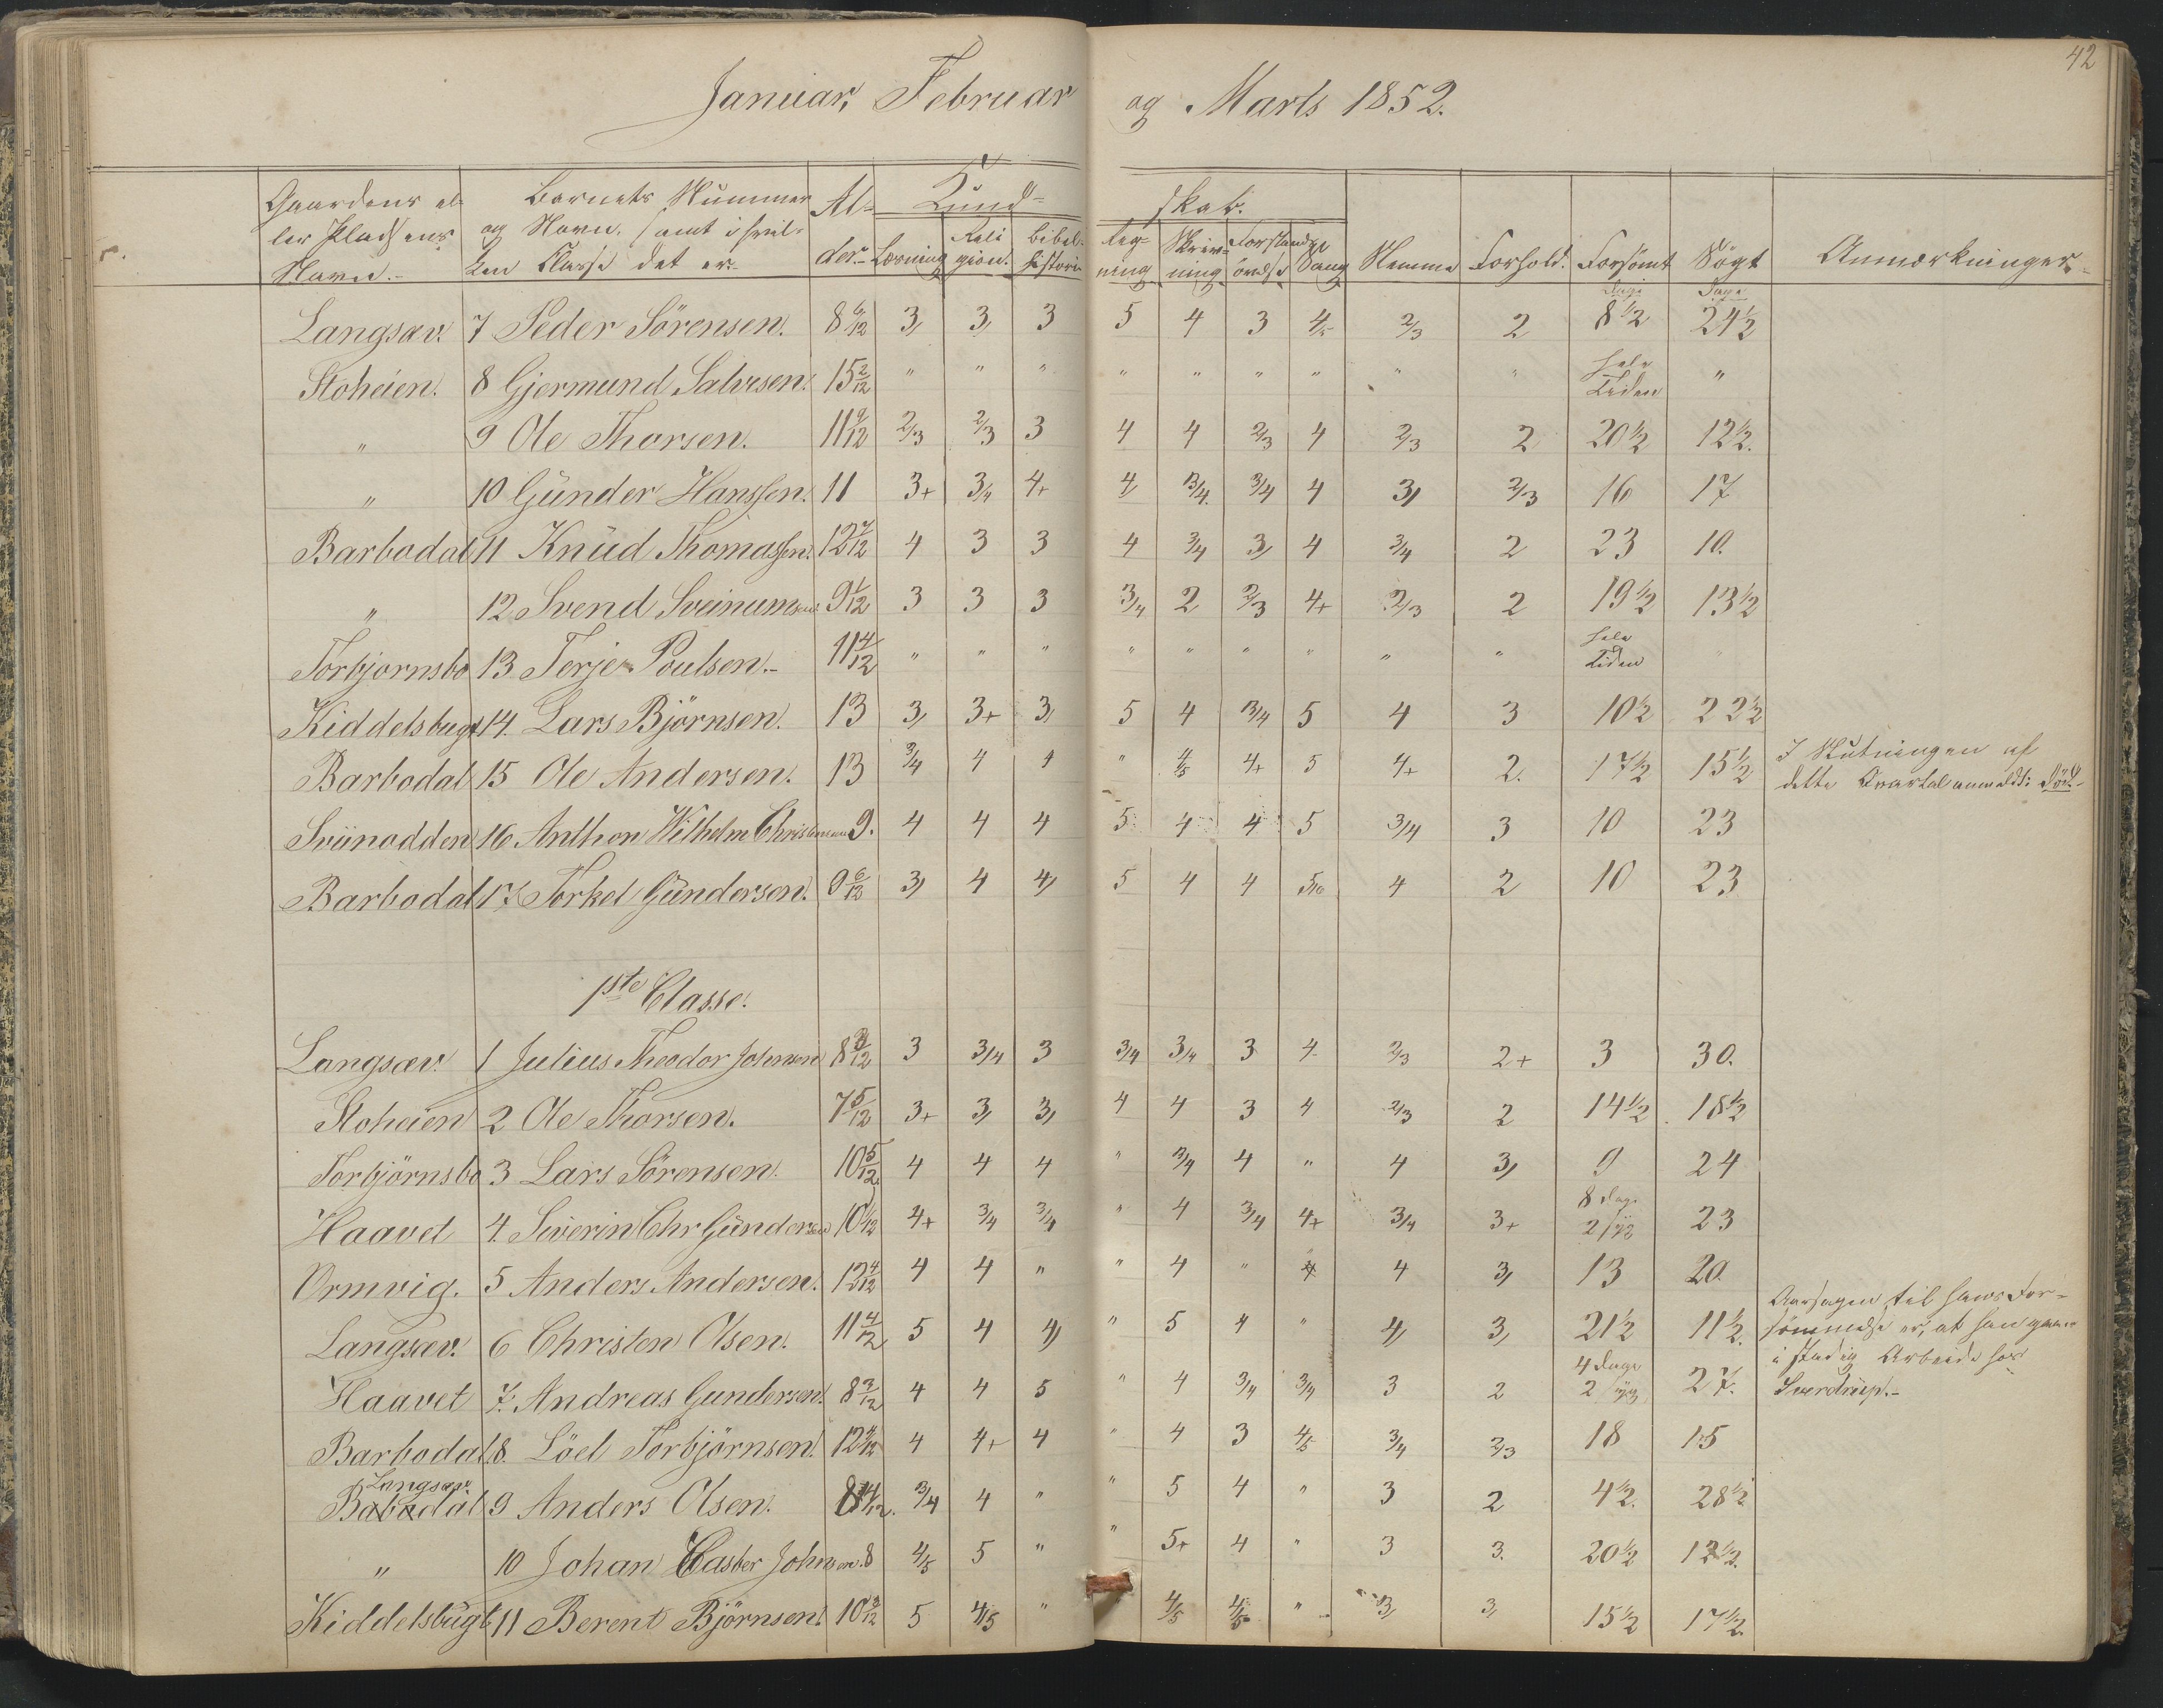 42
Januar, Februar og Marts 1852.
Gaardens el- Barnets Nummer Al- Kund- skab.
ler Pladsens og Navn, samt i hvil- der. Læsning Reli Bibel- Reg- Skriv- Forstands Sang Nemme Forhold. Forsömt Sögt Anmærkninger
Navn. ken Classe det er. gion. historie ning ning övelse Dage Dage
Langsæv. 7 Peder Sörensen. 8 6/12 3, 3, 3 5 4 3 4- 2/3 2 8 1/2 24 1/2
Stoheien. 8 Gjermund Salvesen. 15 2/12 " " " " " " " " " hele Tiden "
" 9 Ole Thorsen. 11 9/12 2/3 2/3 3 4 4 2/3 4 2/3 2 20 1/2 12 1/2.
" 10 Günder Hanssen. 11 3+ 3/4 4+ 4, 3/4. 3/4 4 3, 2/3 16 17
Barbodal 11 Knüd Thomassen. 12 7/12 4 3 3 4 3/4 3, 4 3/4 2 23 10.
" 12 Svend Sveinumsen 9 1/12 3 3 3 3/4 2 2/3 4+ 2/3 2 19 1/2 13 1/2
Torbjornsbo 13 Terje Poulsen.- 11 4/12 " " " " " " " " " hele Tiden "
Kiddelsbugt 14. Lars Björnsen. 13 3, 3+ 3, 5 4 3/4 5 4 3 10 1/2 22 1/2
Barbodal 15 Ole Andersen. 13 3/4 4 4 " 4/5 4+ 5 4+ 2. 17 1/2 15 1/2 I Slutningen af
dette Qvartal anmeldt: död.-
Sviinodden 16 Anthon Wilhelm Christensen 9. 4 4 4 5 4 4 5 3/4 3 10 23
Barbodal 17 Torkel Gündersen. 9 6/12 3, 4 4, 5 4 4 5/6 4 2 10 23
1ste Classe.
Langsæv. 1 Julius Theodor Johnsen 8 3/12 3 3/4 3 3/4 3/4 3 4- 2/3 2+ 3 30.
Stoheien 2 Ole Thorsen. 7 5/12 3+ 3, 3, 4 4 3 4 2/3 2 14 1/2 18 1/2
Torbjörnsbo 3 Lars Sörensen. 10 5/12 4 4 4 " 3/4 4 " 4 3, 9 24
Haavet 4. Severin Chr Gündersen 10 1/12 4+ 3/4 3/4 " 4 3/4 4+ 3/4 3+ 8 Dage 2 syg 23
Ormvig. 5 Anders Andersen. 12 4/12 4 4 " " 4 " 4 3, 13 20.
Langsæv. 6 Christen Olsen. 11 4/12 5 4 4, " 5 4 " 4, 3, 21 1/2 11 1/2. Aarsagen til hans For-
sömmelse er, at han gaaer
i stadig Arbeide hos
Sverdrüp.-
Haavet 7. Andreas Gundersen. 8 3/12 4 4 5 " 4 3/4 3/4 3 2 4 Dage 2 syg 27.
Barbodal. 8. Löel Torbjörnsen. 12 9/12 4 4+ 4 " 4 3 4/5 3/4 2/3 18 15
Langsæv.
Babodal 9 Anders Olsen. 8 4/12. 3/4 4 " " 5 4 " 3 2 4 1/2. 28 1/2
" 10 Johan Casber Johnsen. 8 4/5 5 " " 5+ 4 " 3 3. 20 1/2 12 1/2.
Kiddelsbügt 11 Berent Björnsen. 10 3/12 5 4/5 " 4/5 4/5 " 3, 3, 15 1/2 17 1/2.